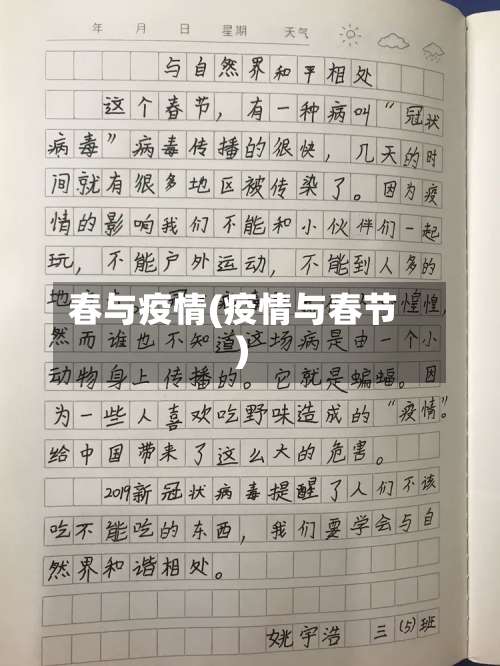 年 月 日 星期 天气
与自然界和平相处
这个春节，有一种病叫“冠状
病毒”病毒传播的很快，几天的时
间就有很多地区被传染了。因为疫
情的影响我们不能和小伙伴们一起
玩，不能户外运动，不能到人多的
春与疫情(疫情与春节
)
地 惶，
然而谁也不知道这场病是由一个小
动物身上传播的。它就是蝙蝠。因
为一些人喜欢吃野味造成的“疫情”。
给中国带来了这么大的危害。
2019新冠状病毒提醒了人们不该
吃不能吃的东西，我们要学会与自
然界和谐相处。
姚宇浩 三(5)班